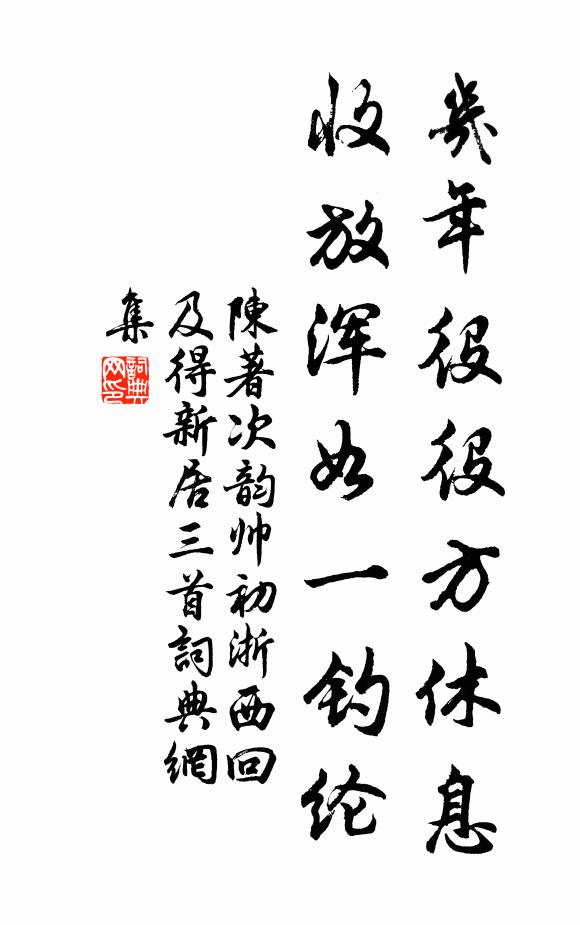 幾年役役方休息
收放浑如一钓纶
陳著次韵帅初浙西回
及得新居三首詞典網
集
詞典网印